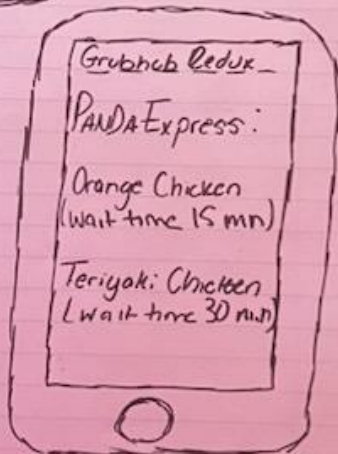 Grubhub Redux
PANDA Express:
Orange Chicken
(wait time 15 min)
Teriyaki Chicken
(wait time 30 min)